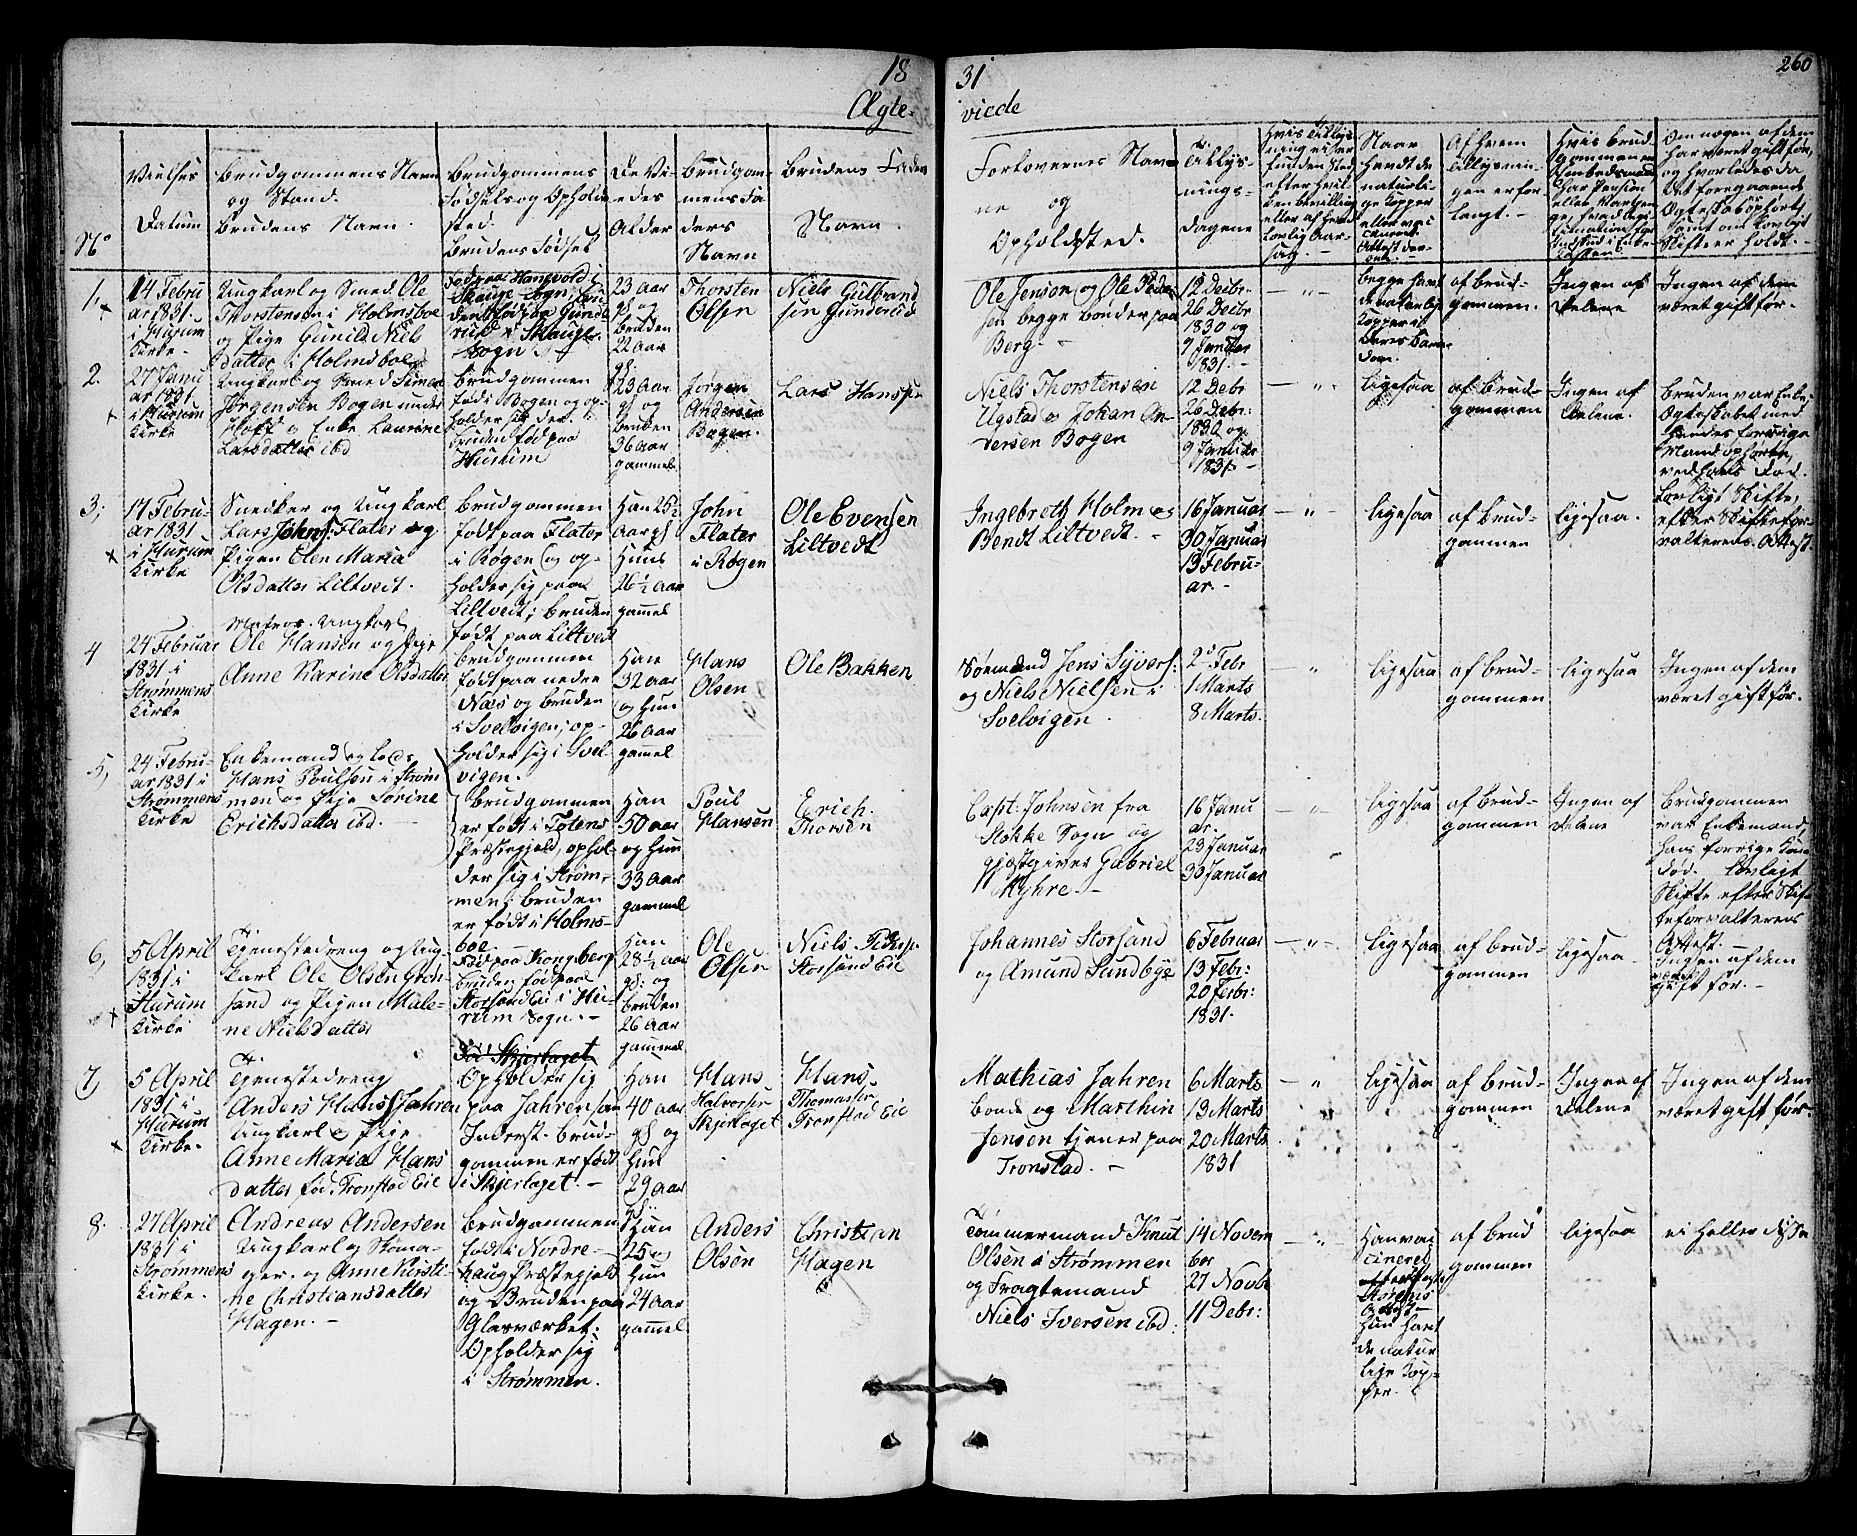 18
31
260
Ægte-
viede
No
Vielses
Datum
Brudgommens Navn
og Stand.
Brudens Navn.
Brudgommens
Fødsels og Opholds
sted.
Brudens Fødsel
De Vi-
edes
Alder
Brudgom-
mens Fa
ders
Navn
Brudens Faders
Navn.
Forlovernes Nav-
ne og
Opholdssted.
Tillys-
nings-
dagene
Naar
havt de
naturli-
ge Kopper
eller
Af Hvem
tillysnin-
gen er for-
langt.
Hvis Brud-
gommen
Om nogen af dem
har været gift før,
og hvorledes da
det foregaaende
Ægteskab ophørt
samt om lovligt
Skifte er holdt.
1,
14 Febru
ar 1831.
i Hurum
Kirke.
Ungkarl og Smed Ole
Thorstensen i Holmsboe
og Pige Gunild Niels
datter i Holmsboe
23 Aar
gl og
Bruden
22 Aar
gl.
Thorsten
Olsen
Niels Gulbrand
sen Gunderud
Ole Jensen og Ole Peder
sen begge Bønder paa
Berg.
12 Decbr.
26 Decbr
1830 og
9 Januar
1831.
begge havt
de naturlige
Kopper i
deres Barn-
dom.
af Brud-
gommen.
Ingen af
Delene
Ingen af dem
været gift før.
2.
27 Janu
ar 1831
i Hurum
Kirke
Ungkarl og Smed Simen
Jørgensen Bogen under
og Enke Laurine
Larsdatter ibd
Brudgommen
født i Bogen og op-
holder sig der.
Bruden fød paa
Hurum
23 Aar
gl og
Bruden
36 Aar
gammel.
Jørgen
Andersen
Bogen.
Lars Hanssen
Niels Thorstensen
og Johan An-
dersen Bogen
12 Debr
26 Debr:
1830 og
9 Januar
1831.
ligesaa
af Brud-
gommen
Ingen af
Delene.
Bruden var Enke,
Ægteskabet med
hendes forrige
Mand ophørte,
ved hans Død.
Lovligt Skifte,
efter Skiftefor-
valterens Attest.
3,
17 Febru-
ar 1831
i Hurum
Kirke
Snedker og Ungkarl
Lars Johns: Flater og
Pigen Elen Maria
Olsdatter Liltvedt.
Brudgommen
født paa Flater
i Røgen og op-
holder sig paa
Liltvedt; Bruden
født paa Liltvedt
Han 25½
Aar gl
Huus
26½ Aar
gammel
John
Flater
i Røgen
Ole Evensen
Liltvedt
Ingebreth Holm og
Bendt Liltvedt.
16 Januar
30 Januar
13 Febru-
ar.
ligesaa
af Brud-
gommen
ligesaa.
4
24 Februar
1831 i
Strømmens
Kirke
Matros. Ungkarl
Ole Hansen og Pige
Anne Karine Olsdatter
Brudgommen
født paa nedre
Næs og Bruden
i Svelvigen; op-
holder sig i Svel-
vigen.
Han
32 Aar
og Hun
26 Aar
gammel
Hans
Olsen
Ole Bakken
Sømænd Jens Syvers:
og Niels Nielsen i
Svelvigen.
Febr
1 Marts
8 Marts.
ligesaa
af Brud-
gommen
ligesaa
Ingen af dem
været gift før.
5,
24 Febru-
ar 1831 i
Strømmens
Kirke
Enkemand og Lods
Hans Poulsen i Strøm
men og Pige Sørine
Erichsdatter ibd.
Brudgommen
er født i Totens
Præstegjeld, ophol-
der sig i Strøm-
men; Bruden
er født i Holms-
boe.
Han
50 Aar
og Hun
33 Aar
gammel
Poul
Hansen
Erich
Thorsen
Capt: Johnsen fra
Stokke Sogn og
Gjæstgiver Gabriel
Myhre.
16 Janu
ar.
23 Januar
30 Januar
ligesaa
af Brud-
gommen
Ingen af
Delene
Brudgommen
var Enkemand,
hans forrige Kone
død. Lovligt
Skifte efter Skif-
teforvalterens
Attest.
6,
5 April
1831 i
Hurum
Kirke
Tjenestedreng og Ung-
karl Ole Olsen
sand og Pigen Male-
ne Nielsdatter
Fød paa Kongsberg
Bruden fød paa
Storsand Eie i Hu-
rum Sogn.
Han
28½ Aar
gl: og
Bruden
26 Aar
gammel
Ole
Olsen
Niels Peders:
Storsand Eie
Johannes Storsand
og Amund Sundbye
6 Februar
13 Febr:
20 Febr:
1831.
ligesaa
af Brud-
gommen
ligesaa
Ingen af dem
været
gift før.
7,
5 April
1831 i
Hurum
Kirke.
Tjenestedreng
Anders Hans: Jahren
Ungkarl og Pige
Anne Maria Hans
datter fød Tronstad Eie
Fød Skjerlaget
Opholder sig
paa Jahren som
Inderst. Brud-
gommen er født
i Skjerlaget.
Han
40 Aar
gl og
Hun
29 Aar
gl:
Hans
Halvorsen
Skjerlaget
Hans
Thomassen
Tronstad Eie
Mathias Jahren
Bonde og Marthin
Jensen tjener paa
Tronstad.
6 Marts
13 Marts
20 Marts
1831
ligesaa
af Brud-
gommen
Ingen af
Delene
Ingen af dem
været gift før.
8.
27 April
1831 i
Strømmens
Kirke.
Andreas Andersen
Ungkarl og Skoma-
ger. og Anne Kirsti-
ne Christiansdatter
Hagen.
Brudgommen
født i Nordre-
haug Præstegjeld
og Bruden paa
Glasværket.
Opholder sig
i Strømmen.
Han
25 og
Hun
24 Aar
gammel
Anders
Olsen
Christian
Hagen
Tømmermand Knut
Olsen i Strømmen
og Fragtemand
Niels Iversen ibd:
14 Novem
ber
27 Novbr
11 Debr:
Han vac
cineret
Attest
Hun havt
de natur
lige Kop-
per.
af Brud
gommen
ligesaa
ei heller disse